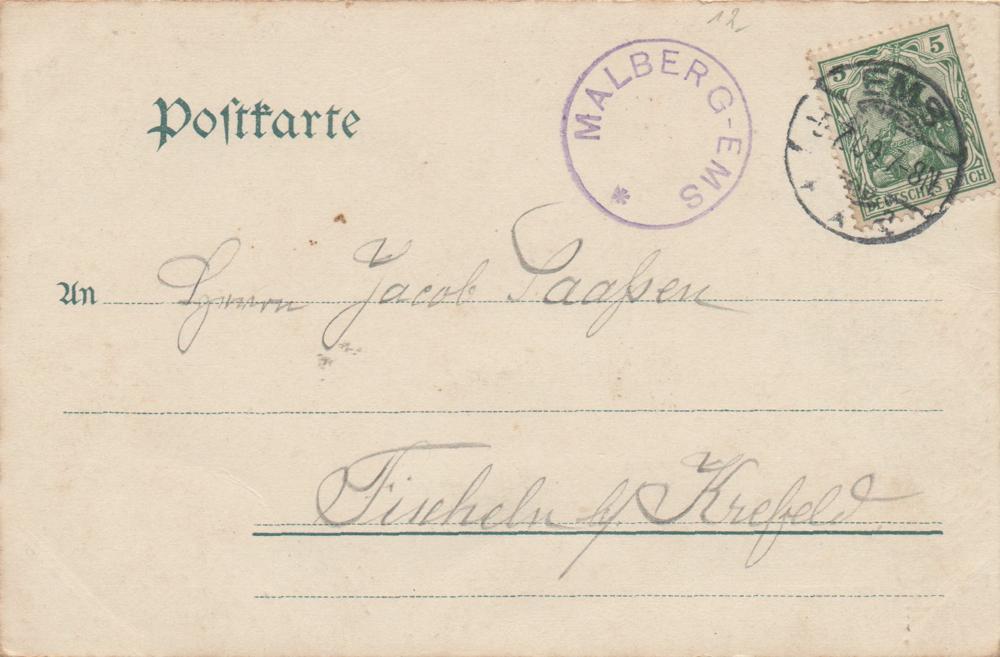 12
Postkarte
MALBERG-EMS
5
5
EMS
DEUTSCHES REICH
An Herrn Jacob Paaßen
Fischeln b/ Krefeld